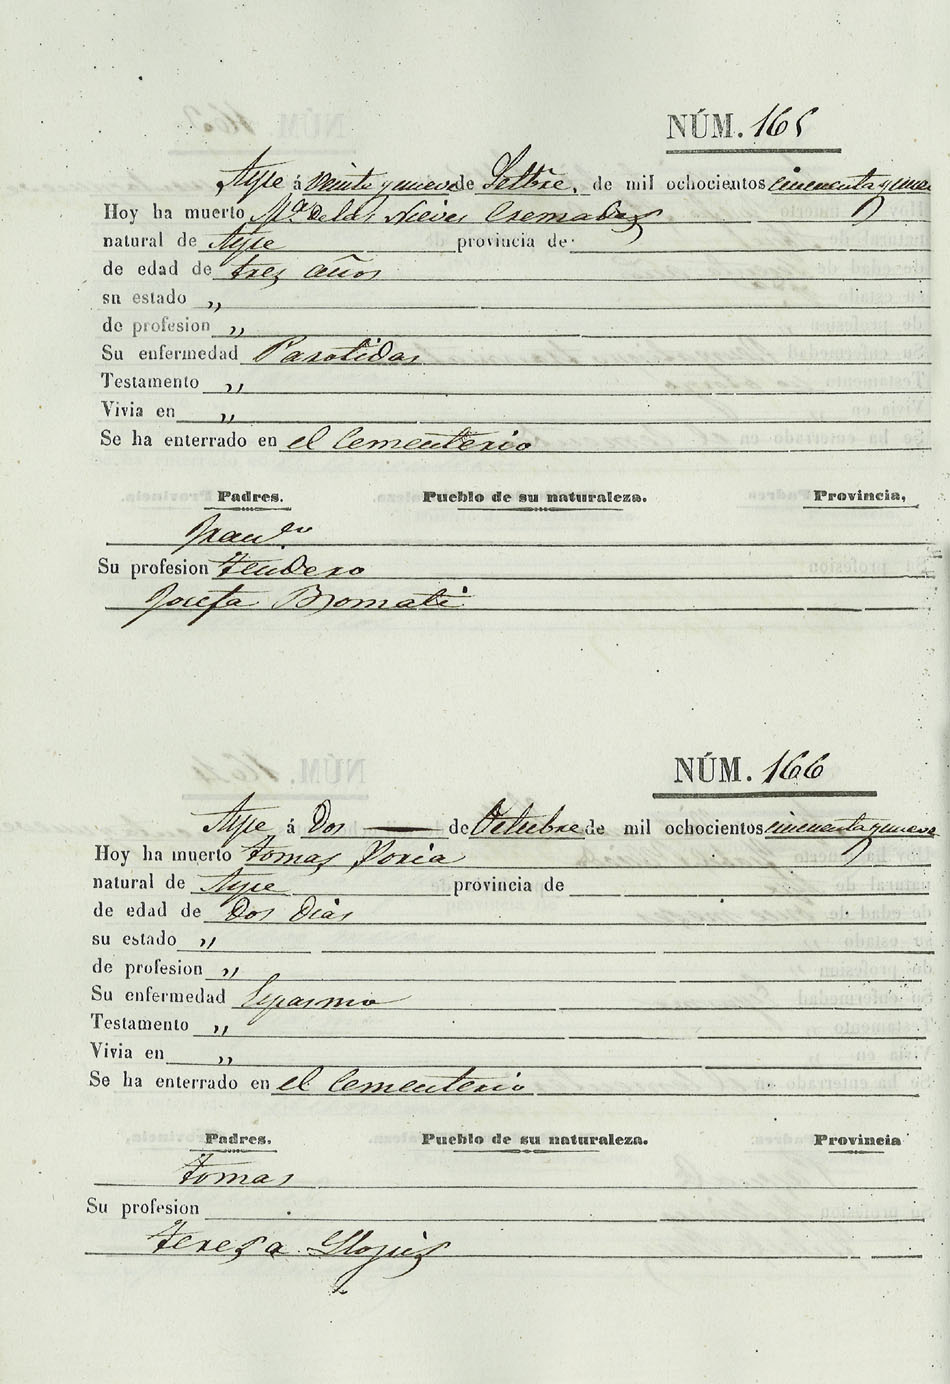 NÚM. 165
Aspe á veinte y nueve de Setbre, de mil ochocientos cincuenta y nueve
Hoy ha muerto Mª de las Nieves Cremades
natural de Aspe provincia de
de edad de tres años
su estado „
de profesion „
Su enfermedad Parotidas
Testamento „
Vivia en „
Se ha enterrado en el Cementerio
Padres. Pueblo de su naturaleza. Provincia,
Franco
Su profesion tendero
Josefa
NÚM. 166
Aspe á Dos de Octubre de mil ochocientos cincuenta y nueve
Hoy ha muerto tomas Soria
natural de Aspe provincia de
de edad de Dos Dias
su estado „
de profesion „
Su enfermedad Espasmo
Testamento „
Vivia en „
Se ha enterrado en el Cementerio
Padres. Pueblo de su naturaleza. Provincia
tomas
Su profesion
tereza Llopiz